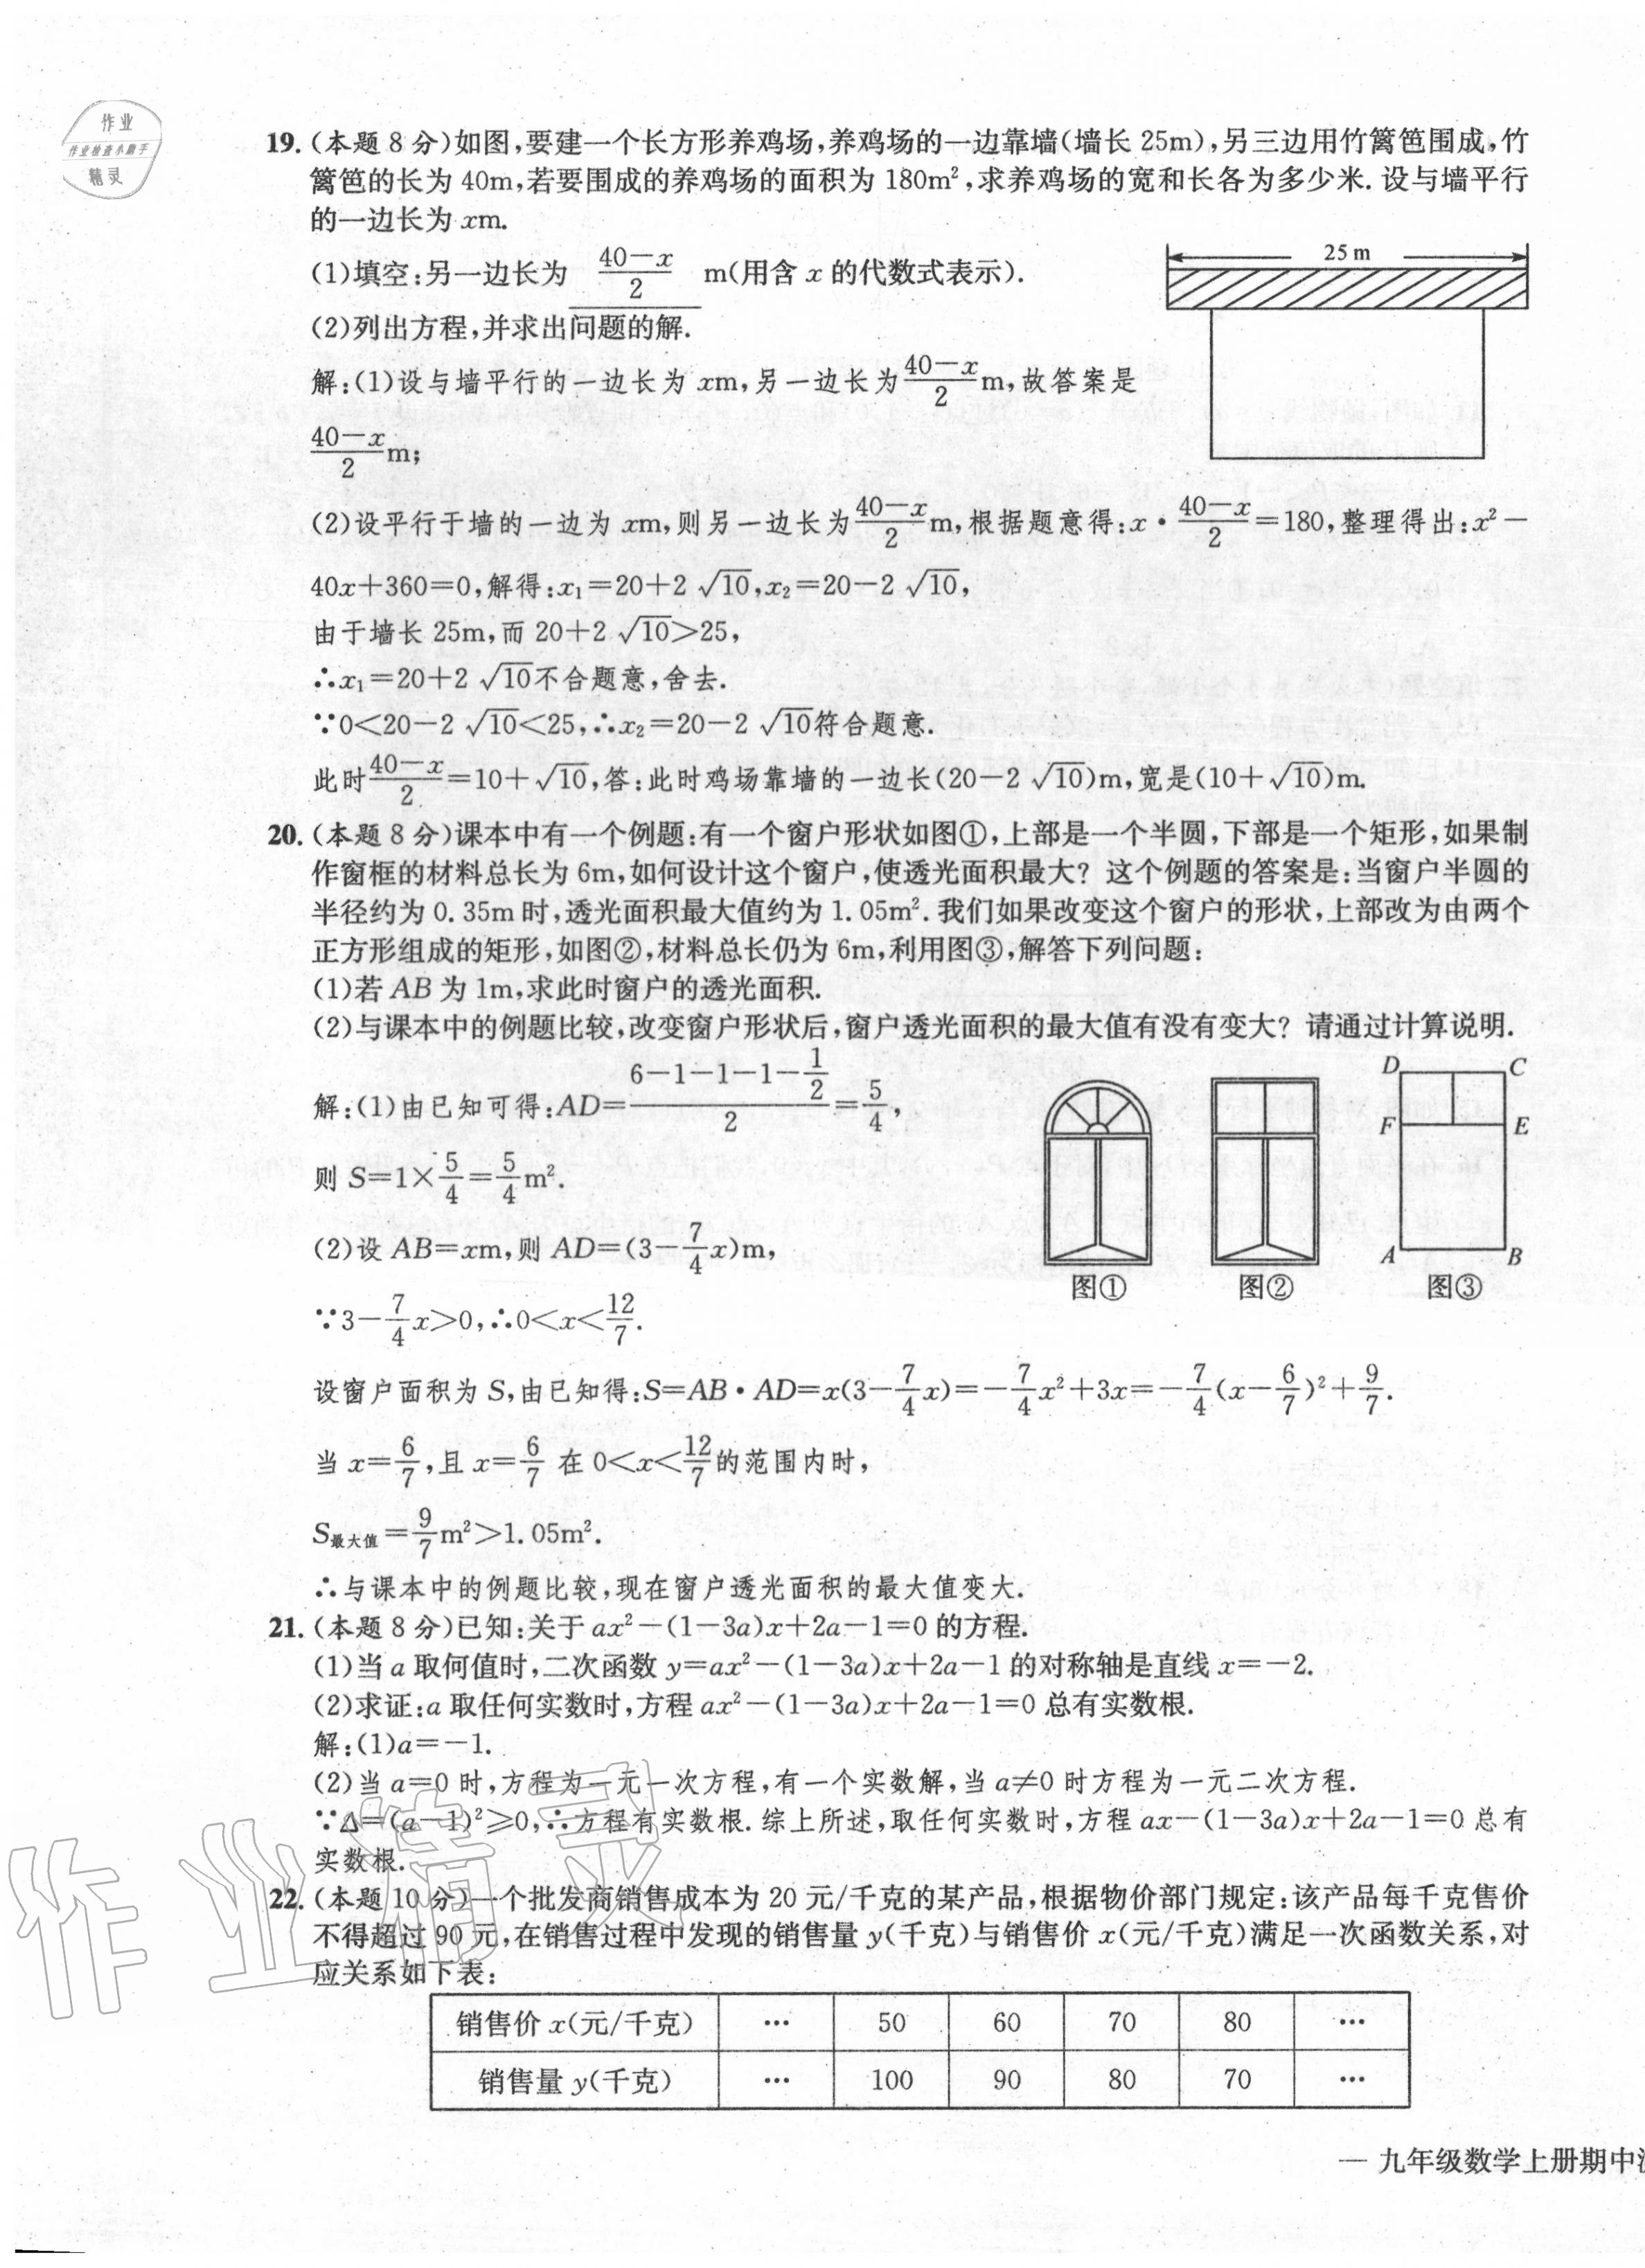 作业
作业检查小助手
精灵
19.(本题8分)如图,要建一个长方形养鸡场,养鸡场的一边靠墙(墙长25m),另三边用竹篱笆围成,竹
篱笆的长为40m,若要围成的养鸡场的面积为180m²,求养鸡场的宽和长各为多少米.设与墙平行
的一边长为xm.
25m
(1)填空:另一边长为 (40−x)/2 m(用含x的代数式表示).
(2)列出方程,并求出问题的解.
解:(1)设与墙平行的一边长为xm,另一边长为(40−x)/2 m,故答案是
(40−x)/2 m;
(2)设平行于墙的一边为xm,则另一边长为(40−x)/2 m,根据题意得:x·(40−x)/2=180,整理得出:x²−
40x+360=0,解得:x₁=20+2√10,x₂=20−2√10,
由于墙长25m,而20+2√10>25,
∴x₁=20+2√10不合题意,舍去.
∵0<20−2√10<25,∴x₂=20−2√10符合题意.
此时(40−x)/2=10+√10,答:此时鸡场靠墙的一边长(20−2√10)m,宽是(10+√10)m.
20.(本题8分)课本中有一个例题:有一个窗户形状如图①,上部是一个半圆,下部是一个矩形,如果制
作窗框的材料总长为6m,如何设计这个窗户,使透光面积最大?这个例题的答案是:当窗户半圆的
半径约为0.35m时,透光面积最大值约为1.05m².我们如果改变这个窗户的形状,上部改为由两个
正方形组成的矩形,如图②,材料总长仍为6m,利用图③,解答下列问题:
(1)若AB为1m,求此时窗户的透光面积.
(2)与课本中的例题比较,改变窗户形状后,窗户透光面积的最大值有没有变大?请通过计算说明.
解:(1)由已知可得:AD=(6−1−1−1−1/2)/2=5/4,
则S=1×5/4=5/4 m².
(2)设AB=xm,则AD=(3−7/4x)m,
D C
F E
A B
图① 图② 图③
∵3−7/4x>0,∴0<x<12/7.
设窗户面积为S,由已知得:S=AB·AD=x(3−7/4x)=−7/4x²+3x=−7/4(x−6/7)²+9/7.
当x=6/7,且x=6/7在0<x<12/7的范围内时,
S最大值=9/7 m²>1.05m².
∴与课本中的例题比较,现在窗户透光面积的最大值变大.
21.(本题8分)已知:关于ax²−(1−3a)x+2a−1=0的方程.
(1)当a取何值时,二次函数y=ax²−(1−3a)x+2a−1的对称轴是直线x=−2.
(2)求证:a取任何实数时,方程ax²−(1−3a)x+2a−1=0总有实数根.
解:(1)a=−1.
(2)当a=0时,方程为一元一次方程,有一个实数解,当a≠0时方程为一元二次方程.
∵Δ=(a−1)²≥0,∴方程有实数根.综上所述,取任何实数时,方程ax−(1−3a)x+2a−1=0总有
实数根.
作业精灵
22.(本题10分)一个批发商销售成本为20元/千克的某产品,根据物价部门规定:该产品每千克售价
不得超过90元,在销售过程中发现的销售量y(千克)与销售价x(元/千克)满足一次函数关系,对
应关系如下表:
销售价x(元/千克) … 50 60 70 80 …
销售量y(千克) … 100 90 80 70 …
— 九年级数学上册期中